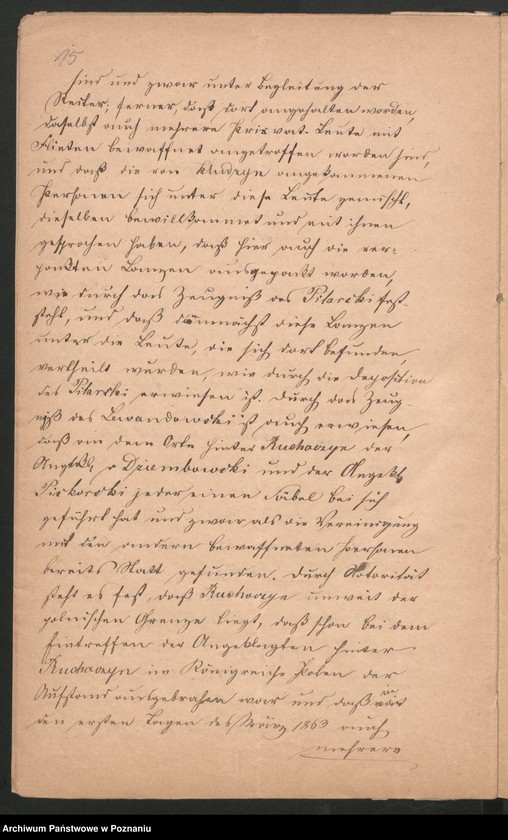 15
sind und zwar unter Begleitung der
Reiter; ferner, daß dort angehalten worden,
daselbst auch mehrere Privat-Leute mit
Flinten bewaffnet angetroffen worden sind,
und daß die von angekommenen
Personen sich unter diese Leute gemischt,
dieselben bewillkommet und mit ihnen
gesprochen haben, daß hier auch die ver-
packten Lanzen ausgepackt worden,
wie durch das Zeugniß des Pilarski fest-
steht, und daß demnächst diese Lanzen
unter die Leute, die sich dort befunden,
vertheilt wurden, wie durch die Deposition
des Pilarski erwiesen ist. Durch das Zeug-
niß des Lewandowski ist auch erwiesen,
daß an dem Orte hinter Ruchocyn der
Angekl. v Dziembowski und der Angekl.
jeder einen Säbel bei sich
geführt hat und zwar als die Vereinigung
mit den andern bewaffneten Personen
bereits Statt gefunden. Durch Notorität
steht es fest, daß Ruchocyn unweit der
polnischen Grenze liegt, daß schon bei dem
Eintreffen der Angeklagten hinter
Ruchocyn im Königreiche Polen der
Aufstand ausgebrochen war und daß in
den ersten Tagen des März 1863 auch
mehrere
Archiwum Państwowe w Poznaniu